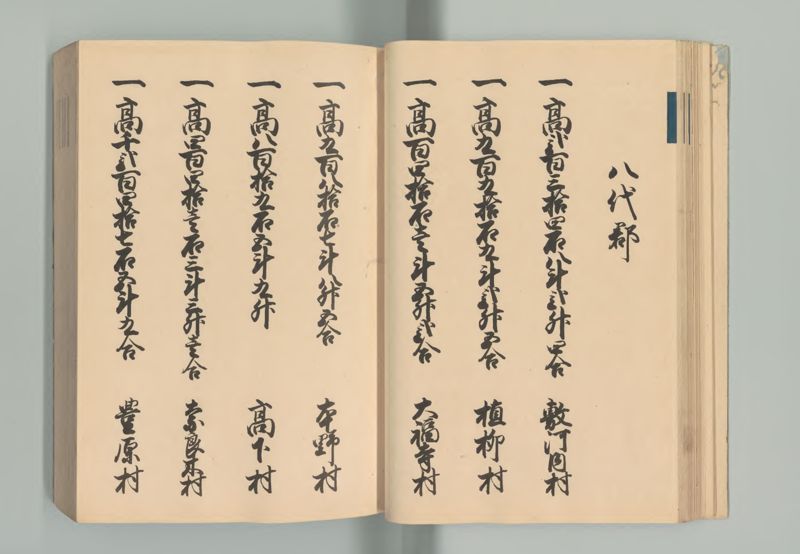 八代郡
一高弐百三拾四石八斗弐升四合 敷河内村
一高九百九拾石九斗弐升五合 植柳村
一高百四拾石壱斗五升弐合 大福寺村
一高九百八拾石七斗八升五合 本野村
一高八百拾九石五斗九升 高下村
一高四百四拾壱石三斗三升壱合 奈良木村
一高千弐百四拾七石五斗九合 豊原村